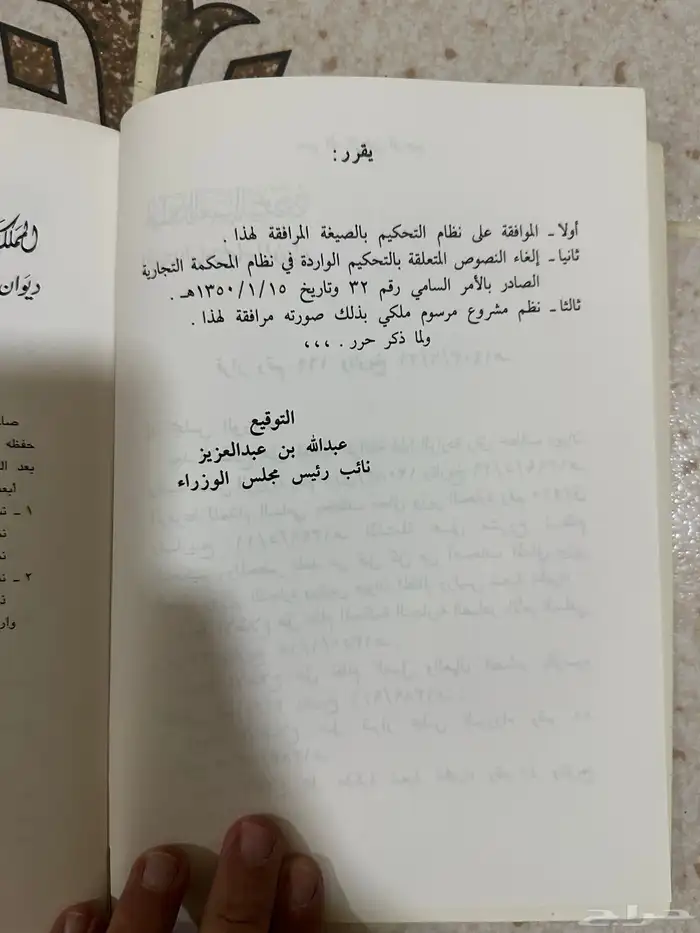 يقرر :
أولاً ـ الموافقة على نظام التحكيم بالصيغة المرافقة لهذا .
ثانيا ـ إلغاء النصوص المتعلقة بالتحكيم الواردة في نظام المحكمة التجارية
الصادر بالأمر السامي رقم ٣٢ وتاريخ ١٣٥٠/١/١٥هـ .
ثالثا ـ نظم مشروع مرسوم ملكي بذلك صورته مرافقة لهذا .
ولما ذكر حرر . ،،،
التوقيع
عبدالله بن عبدالعزيز
نائب رئيس مجلس الوزراء
ديوان
حفظه
١ ـ
٢ ـ
حراج